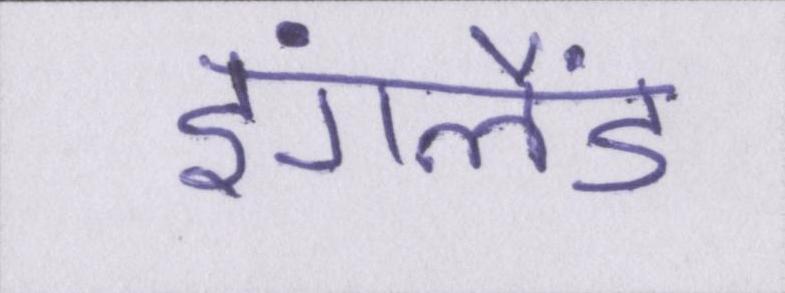 इंगलैंड